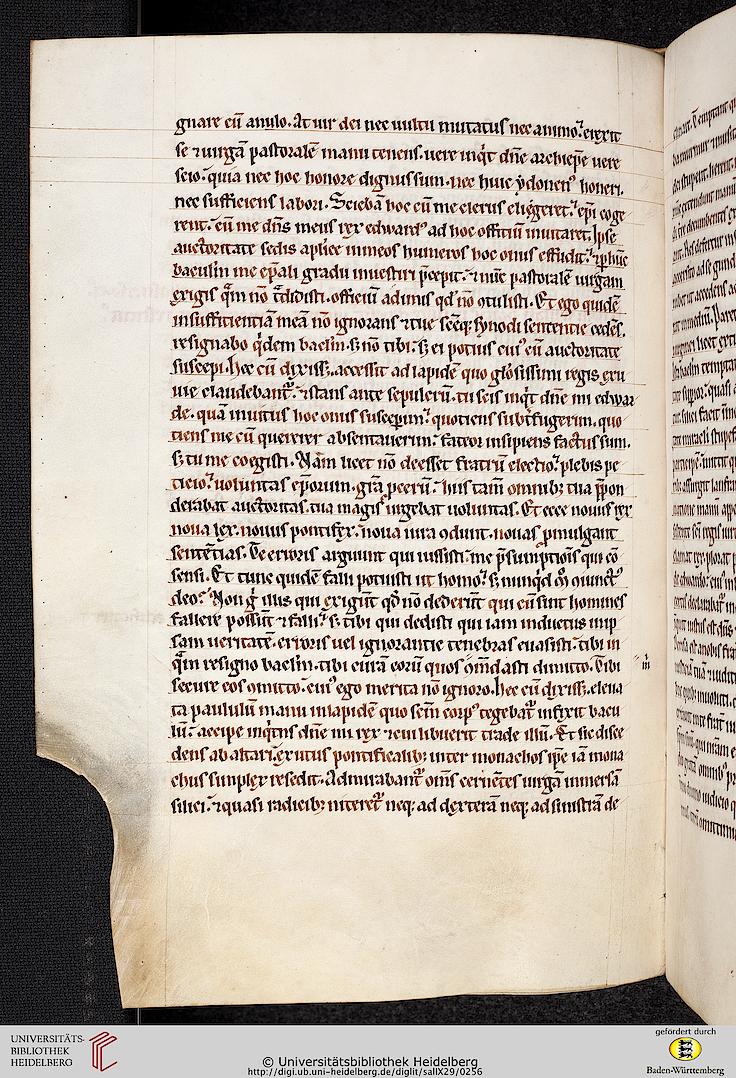 gnare cū anulo. At uir dei nec uultu mutatus nec animo. erexit
se ⁊ uirgā pastoralē manu tenens. uere inqͥt dn̄e archiep̄e uere
scio. quia nec hoc honore dignus sum. nec huic ẏdoneꝰ honeri.
nec sufficiens labori. Sciebā hoc cū me clerus eligeret. ep̄i coge
rent. cū me dn̄s meus rex edwardꝰ ad hoc offitiū inuitaret. Ipse
auctoritate sedis aplīce in meos humeros hoc onus effudit. ⁊ ꝑ hūc
baculū me ep̄ali gradu inuestiri p̄cepit. ⁊ nūc pastoralē uirgam
exigis qͣm nō t̄didisti. officiū adimis qd̄ nō ɔtulisti. Et ego quidē
insufficientiā meā nō ignorans ⁊ tue sc̄eqꝫ synodi sententie cedēs.
resignabo qͥdem baclm̄. sꝫ nō tibi. sꝫ ei potius cuiꝰ eū auctoritate
suscepi. Hec cū dixissꝫ. accessit ad lapidē quo glōsissimi regis exu
uie claudebantᷣ. ⁊ stans ante sepulcrū. tu scis inqͥt dn̄e mi edwar
de. quā inuitus hoc onus susceperim. quotiens subt̄fugerim. quo
tiens me cū quererer absentauerim. fateor insipiens factus sum.
sꝫ tu me coegisti. Nam licet nō deesset fratrū electio. plebis pe
ticio. uoluntas ep̄orum. gr̄a ꝓcerū. his tam̄ omnibꝫ tua p̄pon
derabat auctoritas. tua magis urgebat uoluntas. Et ecce nouus rex
noua lex. nouus pontifex. noua iura ɔdunt. nouas ꝓmulgant
sentētias. Te erroris arguunt qui iussisti. me p̄sumptiōis qui cō
sensi. Et tunc quidē falli potuisti ut homo. sꝫ nunqͥd m̊ ɔiunctꝰ
deo. Non gͦ illis qui exigūt qd̄ nō dederūt qui cū sint homines
fallere possūt ⁊ falli. sꝫ tibi qui dedisti qui iam inductus in ip
sam ueritatē. erroris uel ignorantie tenebras euasisti. tibi in
qͣm resigno baclm̄. tibi curā eorū quos ɔm̄dasti dimitto. Tibi
secure eos ɔmitto. cuiꝰ ego merita nō ignoro. Hec cū dixissꝫ. eleua
ta paululū manu in lapidē quo sc̄m corpꝰ tegebatᷣ infixit bacu
lū. accipe inqͥens dn̄e mi rex ⁊ cui libuerit trade illū. Et sic disce
dens ab altari. exutus pontificalibꝫ. inter monachos ip̄e iā mona
chus simplex resedit. Admirabantᷣ om̄s cernētes uirgā in mersā
silici. ⁊ quasi radicibꝫ niteretᷣ neqꝫ ad dexterā neqꝫ ad sinistrā de
UNIVERSITÄTS-
BIBLIOTHEK
HEIDELBERG
© Universitätsbibliothek Heidelberg
http://digi.ub.uni-heidelberg.de/diglit/salIX29/0256
gefördert durch
Baden-Württemberg